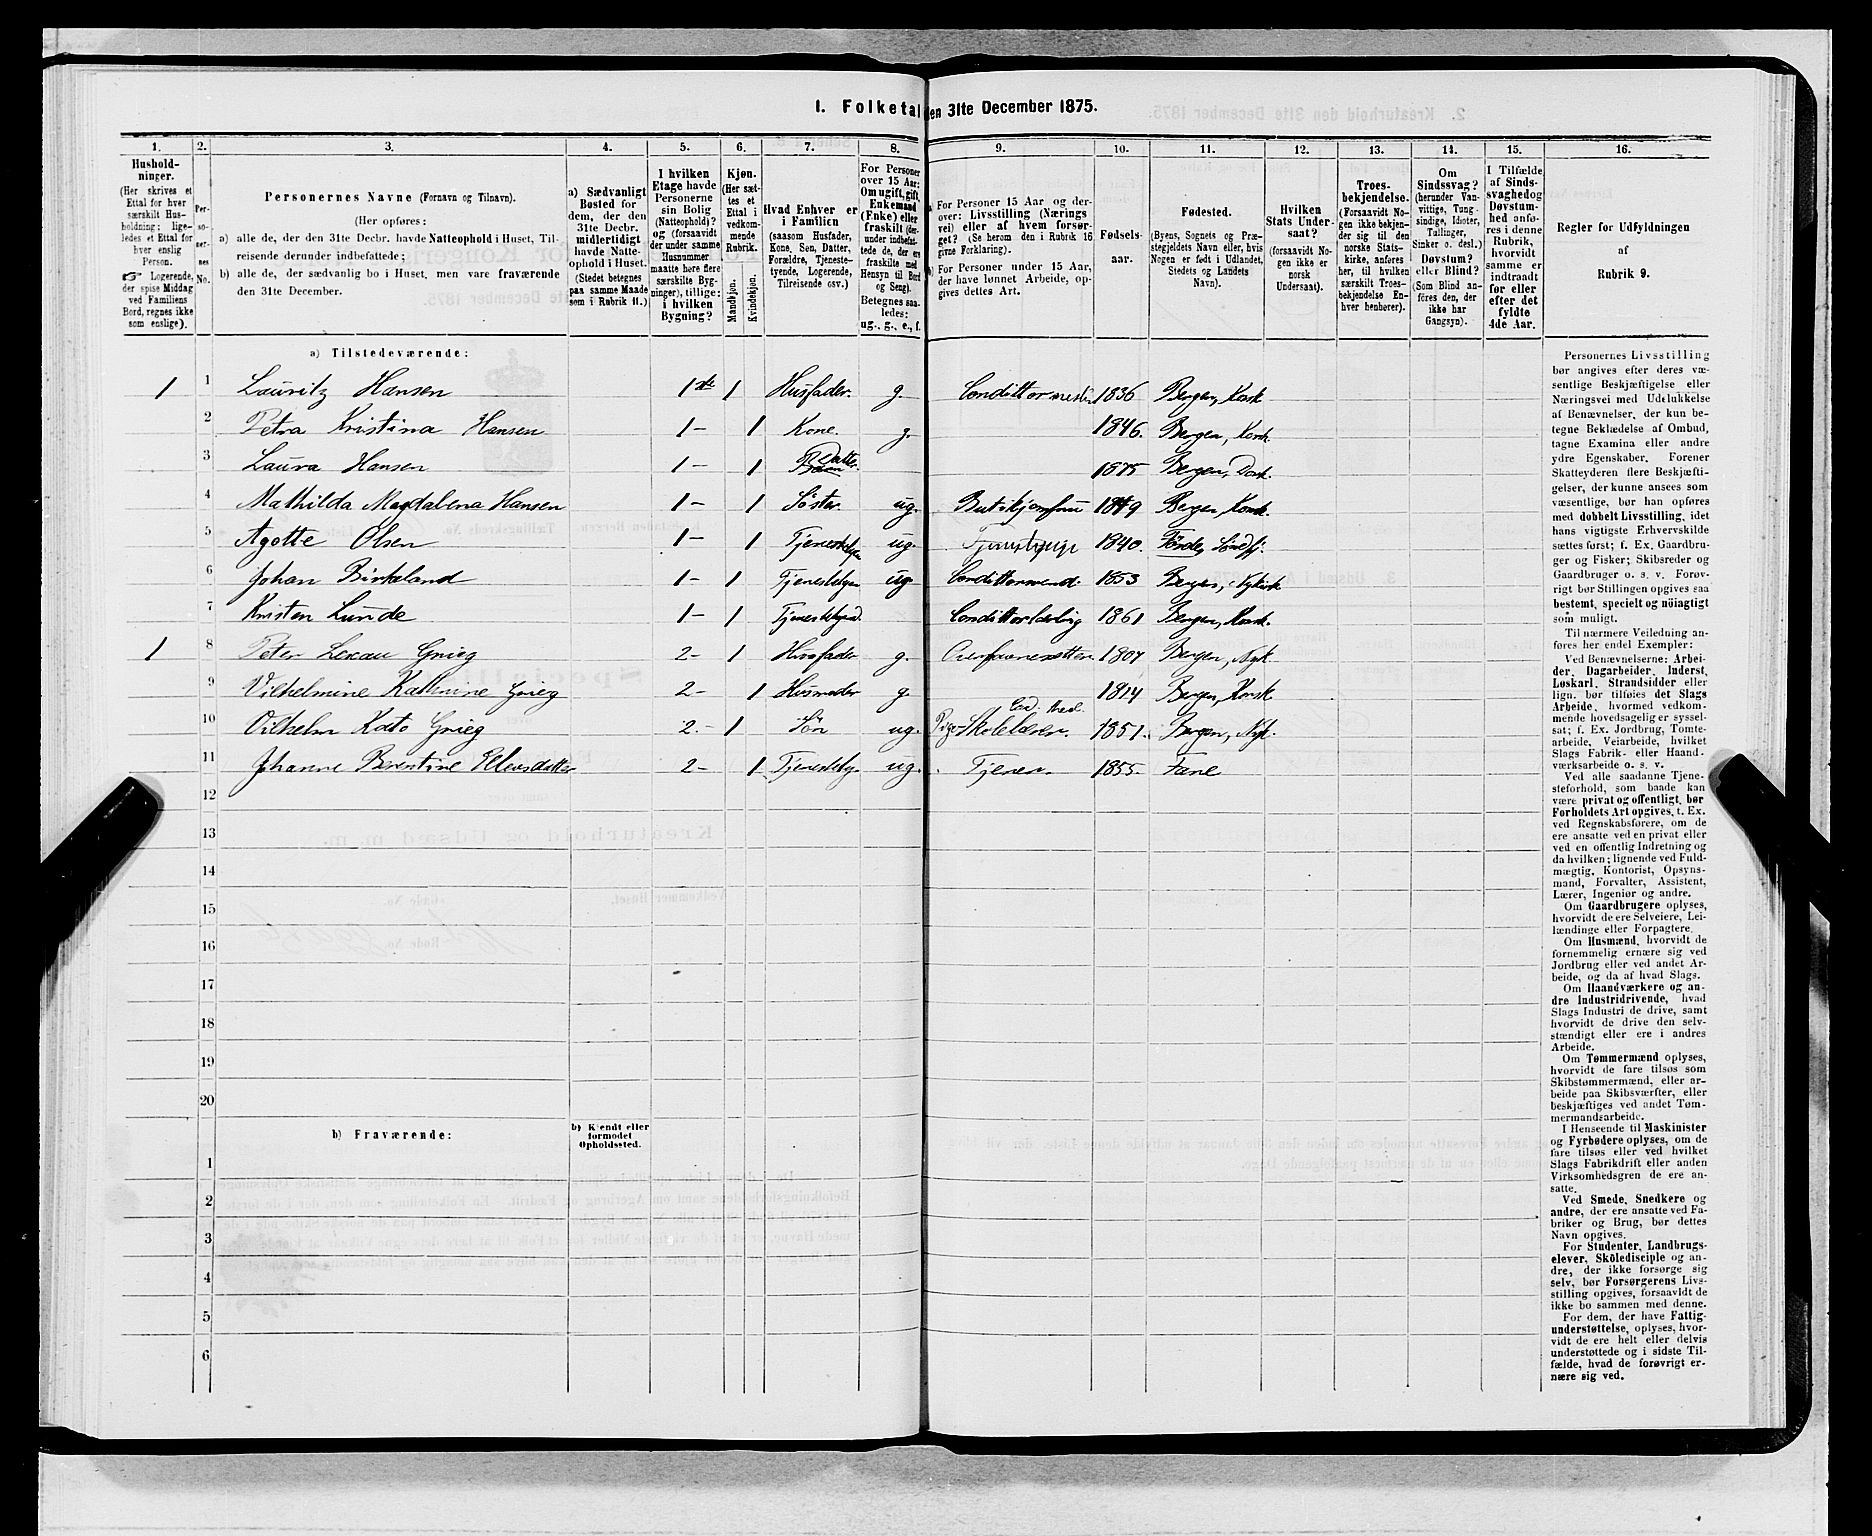 1. Folketal den 31te December 1875.
1. 2. 3. 4. 5. 6. 7. 8. 9. 10. 11. 12. 13. 14. 15. 16.
Hushold-
ninger.
(Her skrives et
Ettal for hver
særskilt Hus-
holdning; lige-
ledes et Ettal for
hver enslig
Person.
☞ Logerende,
der spise Middag
ved Familiens
Bord, regnes ikke
som enslige).
Per-
so-
ner-
nes
No.
Personernes Navne (Fornavn og Tilnavn).
(Her opføres:
a) alle de, der den 31te Decbr. havde Natteophold i Huset, Til-
reisende derunder indbefattede;
b) alle de, der sædvanlig bo i Huset, men vare fraværende
den 31te December.
a) Sædvanligt
Bosted for
dem, der den
31te Decbr.
midlertidigt
havde Natte-
ophold i Huset.
(Stedet betegnes
paa samme Maade
som i Rubrik 11.)
I hvilken
Etage havde
Personerne
sin Bolig
(Natteophold)?
og (forsaavidt
der under samme
Husnummer
maatte høre flere
særskilte Byg-
ninger), tillige:
i hvilken
Bygning?
Kjøn.
(Her sæt-
tes et
Ettal i
vedkom-
mende
Rubrik.
Mandkjøn.
Kvindekjøn.
Hvad Enhver er
i Familien
(saasom Husfader,
Kone, Søn, Datter,
Forældre, Tjeneste-
tyende, Logerende,
Tilreisende osv.)
For Personer
over 15 Aar:
Om ugift, gift,
Enkemand
(Enke) eller
fraskilt (der-
under indbefat-
tede de, der ere
fraskilte med
Hensyn til Bord
og Seng).
Betegnes saa-
ledes:
ug., g., e., f.
a) For Personer 15 Aar og der-
over: Livsstilling (Nærings
vei) eller af hvem forsør-
get? (Se herom den i Rubrik 16
givne Forklaring).
b) For Personer under 15 Aar,
der have lønnet Arbeide, op-
gives dettes Art.
Fødsels-
aar.
Fødested.
(Byens, Sognets og Præ-
stegjeldets Navn eller, hvis
Nogen er født i Udlandet,
Stedets og Landets
Navn).
Hvilken
Stats Under-
saat?
(forsaavidt No-
gen ikke er
norsk
Undersaat).
Troes-
bekjendelse.
(Forsaavidt No-
gen ikke bekjen-
der sig til den
norske Stats-
kirke, anføres
her, til hvilken
særskilt Troes-
bekjendelse En-
hver henhører).
Om
Sindssvag?
(herunder Van-
vittige, Tung-
sindige, Idioter,
Tullinger,
Sinker o. desl.)
Døvstum?
eller Blind?
(Som Blind an-
føres den, der
ikke har
Gangsyn).
I Tilfælde
af Sinds-
svaghed og
Døvstum-
hed anfø-
res i denne
Rubrik,
hvorvidt
samme er
indtraadt
før eller
efter det
fyldte
4de Aar.
Regler for Udfyldningen
af
Rubrik 9.
a) Tilstedeværende:
1 1 Lauritz Hansen 1ste 1 Husfader. g. Condittormester 1836 Bergen, Korsk.
2 Petra Kristina Hansen 1- 1 Kone. g. 1846. Bergen, Korsk.
3 Laura Hansen 1- 1 Datter 1875 Bergen, Domk.
4 Mathilda Magdalena Hansen 1- 1 Søster ug. Butikjomfru 1849 Bergen, Korsk.
5 Agotte Olsen 1- 1 ug. 1840. Førde, Søndfj.
6 Johan Birkeland 1- 1 Tjenestetyen ug. Condittorsvend. 1853 Bergen, Nykirk
7 Kristen Lunde 1- 1 Condittorlærling 1861 Bergen, Korsk.
1 8 Peter Lexau Grieg 2- 1 Husfader g. 1807 Bergen, Nyk.
9 Vilhelmine Kathrine Grieg 2- 1 Husmoder g 1814 Bergen, Korsk
10 Vilhelm Kato Grieg 2.- 1 Søn ug. Skolelærer. 1851. Bergen, Nyk.
11 Johanne Berentine Ellensdatter 2- 1 Tjenestety. ug. Tjener. 1855. Fane
12
13
14
15
16
17
18
19
20
b) Fraværende:
b) Kjendt eller
formodet
Opholdssted.
1
2
3
4
5
6
Personernes Livsstilling
bør angives efter deres væ-
sentlige Beskjæftigelse eller
Næringsvei med Udelukkelse
af Benævnelser, der kun be-
tegne Beklædelse af Ombud,
tagne Examina eller andre
ydre Egenskaber. Forener
Skatteyderen flere Beskjæfti-
gelser, der kunne ansees som
væsentlige, bør han opføres
med dobbelt Livsstilling, idet
hans vigtigste Erhvervskilde
sættes først; f. Ex. Gaardbru-
ger og Fisker; Skibsreder og
Gaardbruger o. s. v. Forøv-
rigt bør Stillingen opgives saa
bestemt, specielt og nöiagtigt
som muligt.
Til nærmere Veiledning an-
føres her endel Exempler:
Ved Benævnelserne: Arbei-
der, Dagarbeider, Inderst,
Løskarl, Strandsidder eller
lign. bør tilføies det Slags
Arbeide, hvormed vedkom-
mende hovedsagelig er syssel-
sat; f. Ex. Jordbrug, Tomte-
arbeide, Veiarbeide, hvilket
Slags Fabrik- eller Haand-
værksarbeide o. s. v.
Ved alle saadanne Tjene-
steforhold, som baade kan
være privat og offentligt, bør
Forholdets Art opgives, t. Ex.
ved Regnskabsførere, om de
ere ansatte ved en privat eller
ved en offentlig Indretning og
da hvilken; lignende ved Fuld-
mægtig, Kontorist, Opsyns-
mand, Forvalter, Assistent,
Lærer, Ingeniør og andre.
Om Gaardbrugere oplyses,
hvorvidt de ere Selveiere, Lei-
lændinge eller Forpagtere.
Om Husmænd, hvorvidt de
fornemmelig ernære sig ved
Jordbrug eller ved andet Ar-
beide, og da af hvad Slags.
Om Haandværkere og an-
dre Industridrivende, hvad
Slags Industri de drive, samt
hvorvidt de drive den selv-
stændigt eller ere i andres
Arbeide.
Om Tømmermænd oplyses,
hvorvidt de fare tilsøs som
Skibstømmermænd, eller ar-
beide paa Skibsværfter, eller
beskjæftiges ved andet Tøm-
mermandsarbeide.
I Henseende til Maskinister
og Fyrbødere oplyses, om de
fare tilsøs eller ved hvilket
Slags Fabrikdrift eller anden
Virksomhedsgren de ere an-
satte.
Ved Smede, Snedkere og
andre, der ere ansatte ved Fa-
briker og Brug, bør dettes
Navn opgives.
For Studenter, Landbrugs-
elever, Skoledisciple og an-
dre, der ikke forsørge sig
selv, bør Forsørgerens Livs-
stilling opgives, forsaavidt de
ikke bo sammen med denne.
For dem, der have Fattig-
understøttelse, oplyses, hvor-
vidt de ere helt eller delvis
understøttede og i sidste Til-
fælde, hvad de forøvrigt er-
nære sig ved.